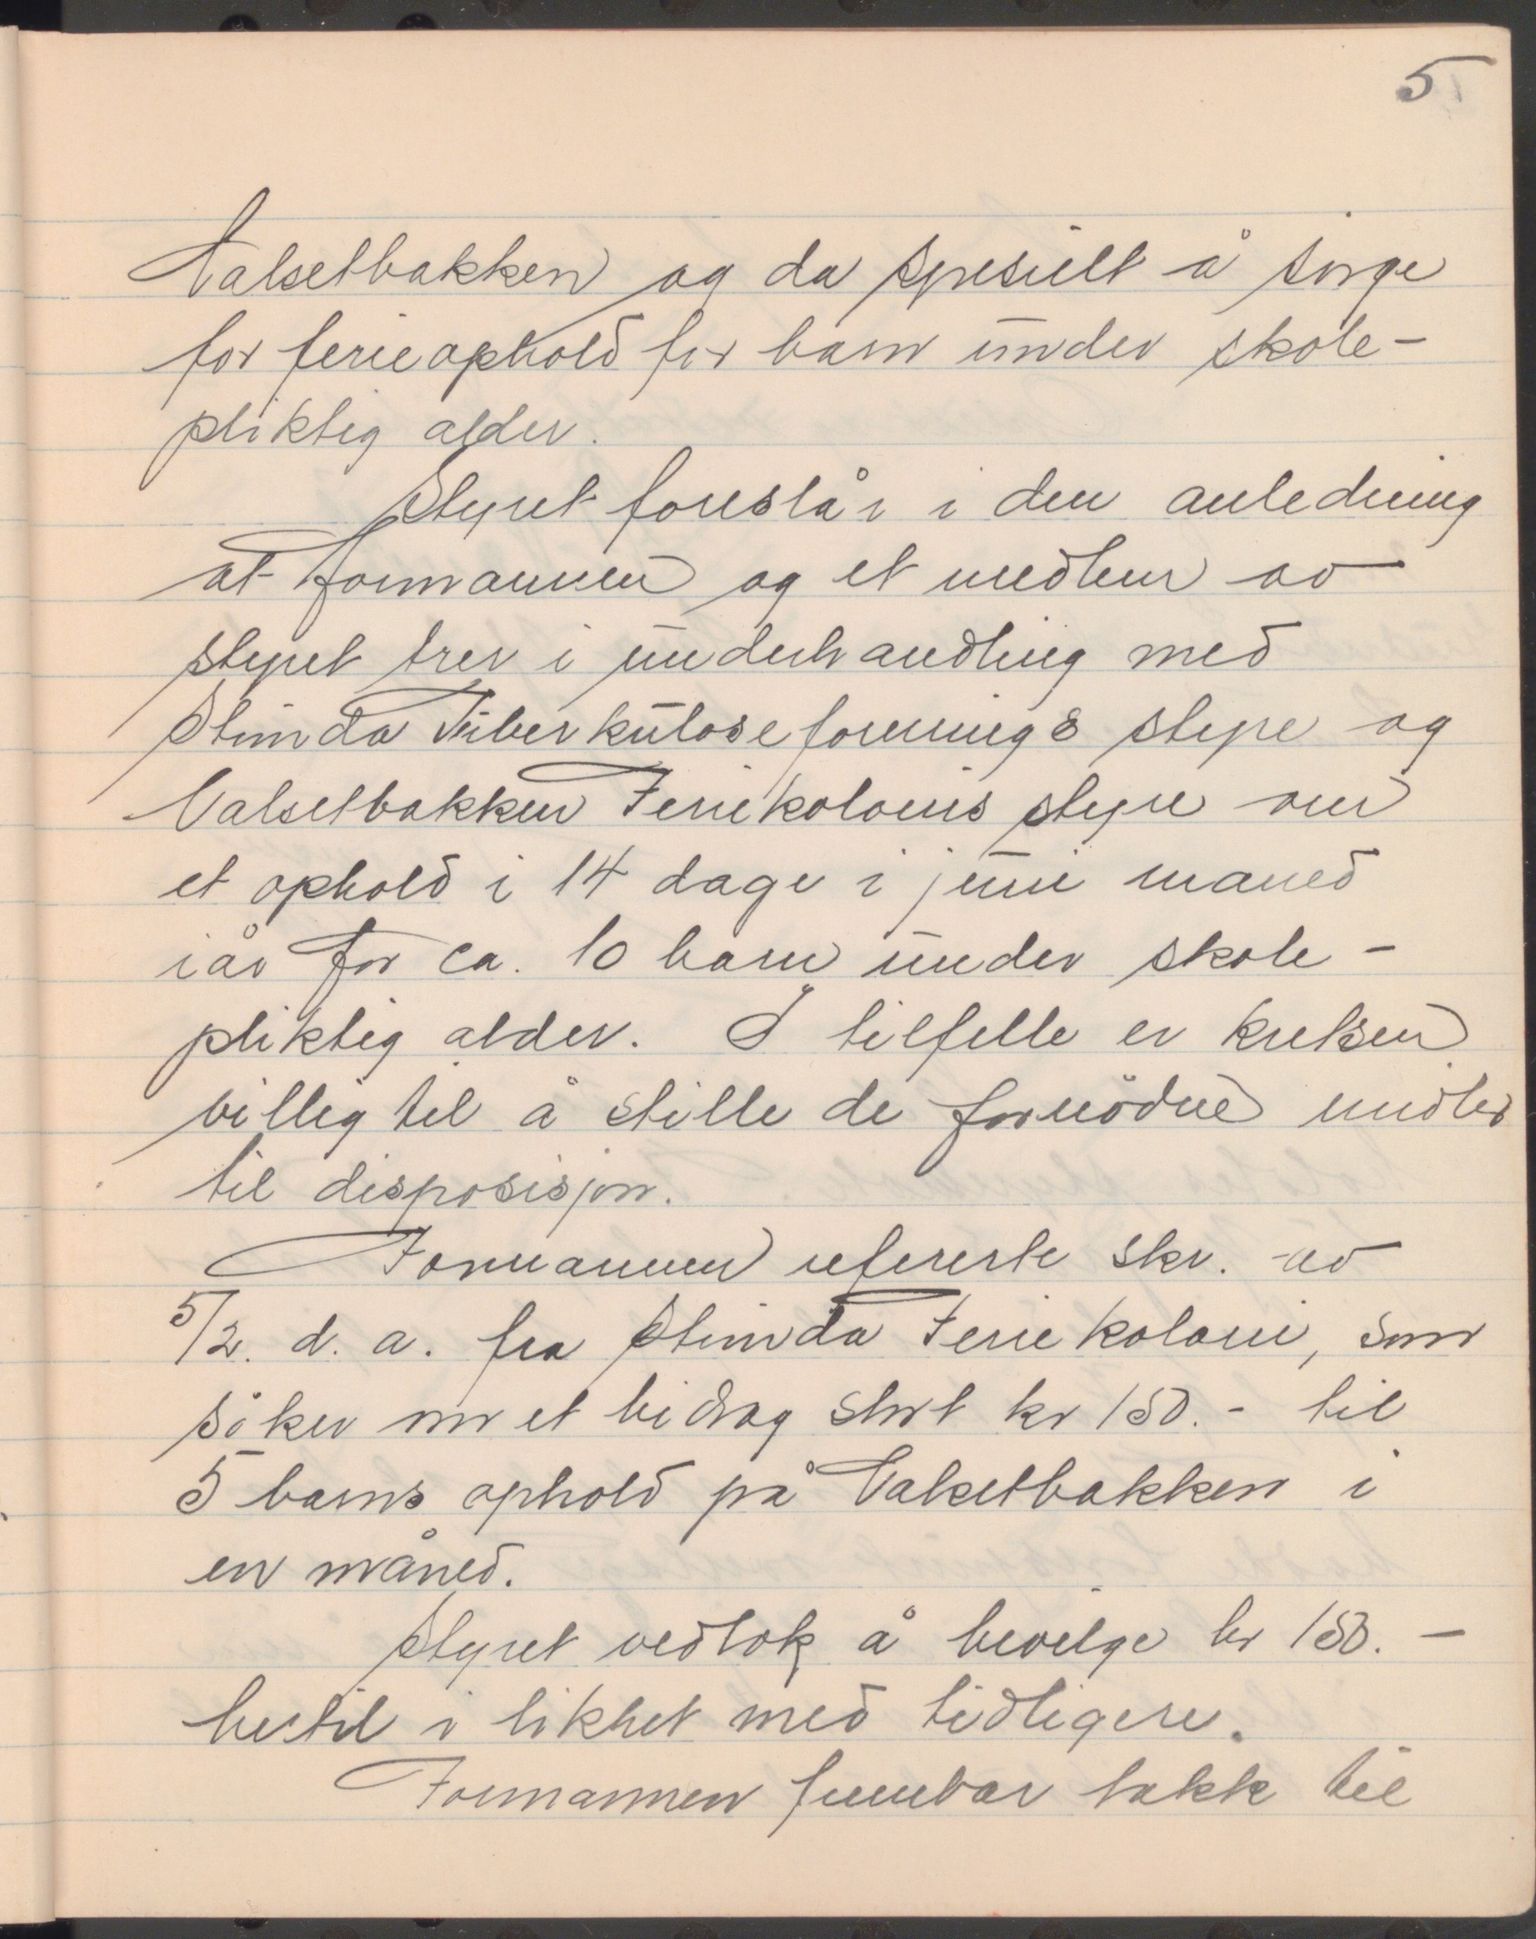 5
Valsetbakken og da spesielt å sörge
for ferieophold for barn under skole-
pliktig alder.
Styret foreslår i den anledning
at formannen og et medlem av
styret trer i underhandling med
Strinda Tuberkuloseforenings styre og
Valsetbakken Feriekolonis styre om
et ophold i 14 dage i juni maned
iår for ca. 10 barn under skole-
pliktig alder. I tilfelle er kretsen
villig til å stille de fornödne midler
til disposisjon.
Formannen refererte skr. av
5/2. d. a. fra Strinda Feriekoloni, som
söker om et bidrag stort kr 150.- til
5 barns ophold på Valsetbakken i
en måned.
Styret vedtok å bevilge kr 150.-
hertil i likhet med tidligere.
Formannen frembar takk til